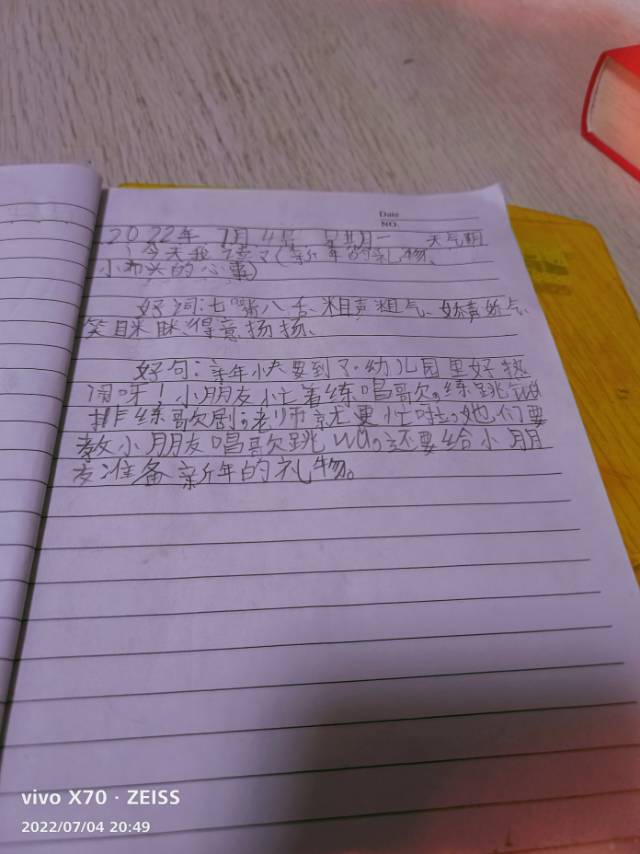 Date
NO.
2022年 7月4号 星期一 天气阴
今天我读了(新年的礼物、
小布头的心事)
好词:七嘴八舌、粗声粗气、娇声娇气、
笑眯眯、得意扬扬、
好句:新年小快要到了、幼儿园里好热
闹呀!小朋友忙着练唱歌。练跳
排练歌剧;老师就更忙啦,她们要
教小朋友唱歌跳wu。还要给小朋
友准备新年的礼物。
vivo X70 · ZEISS
2022/07/04 20:49